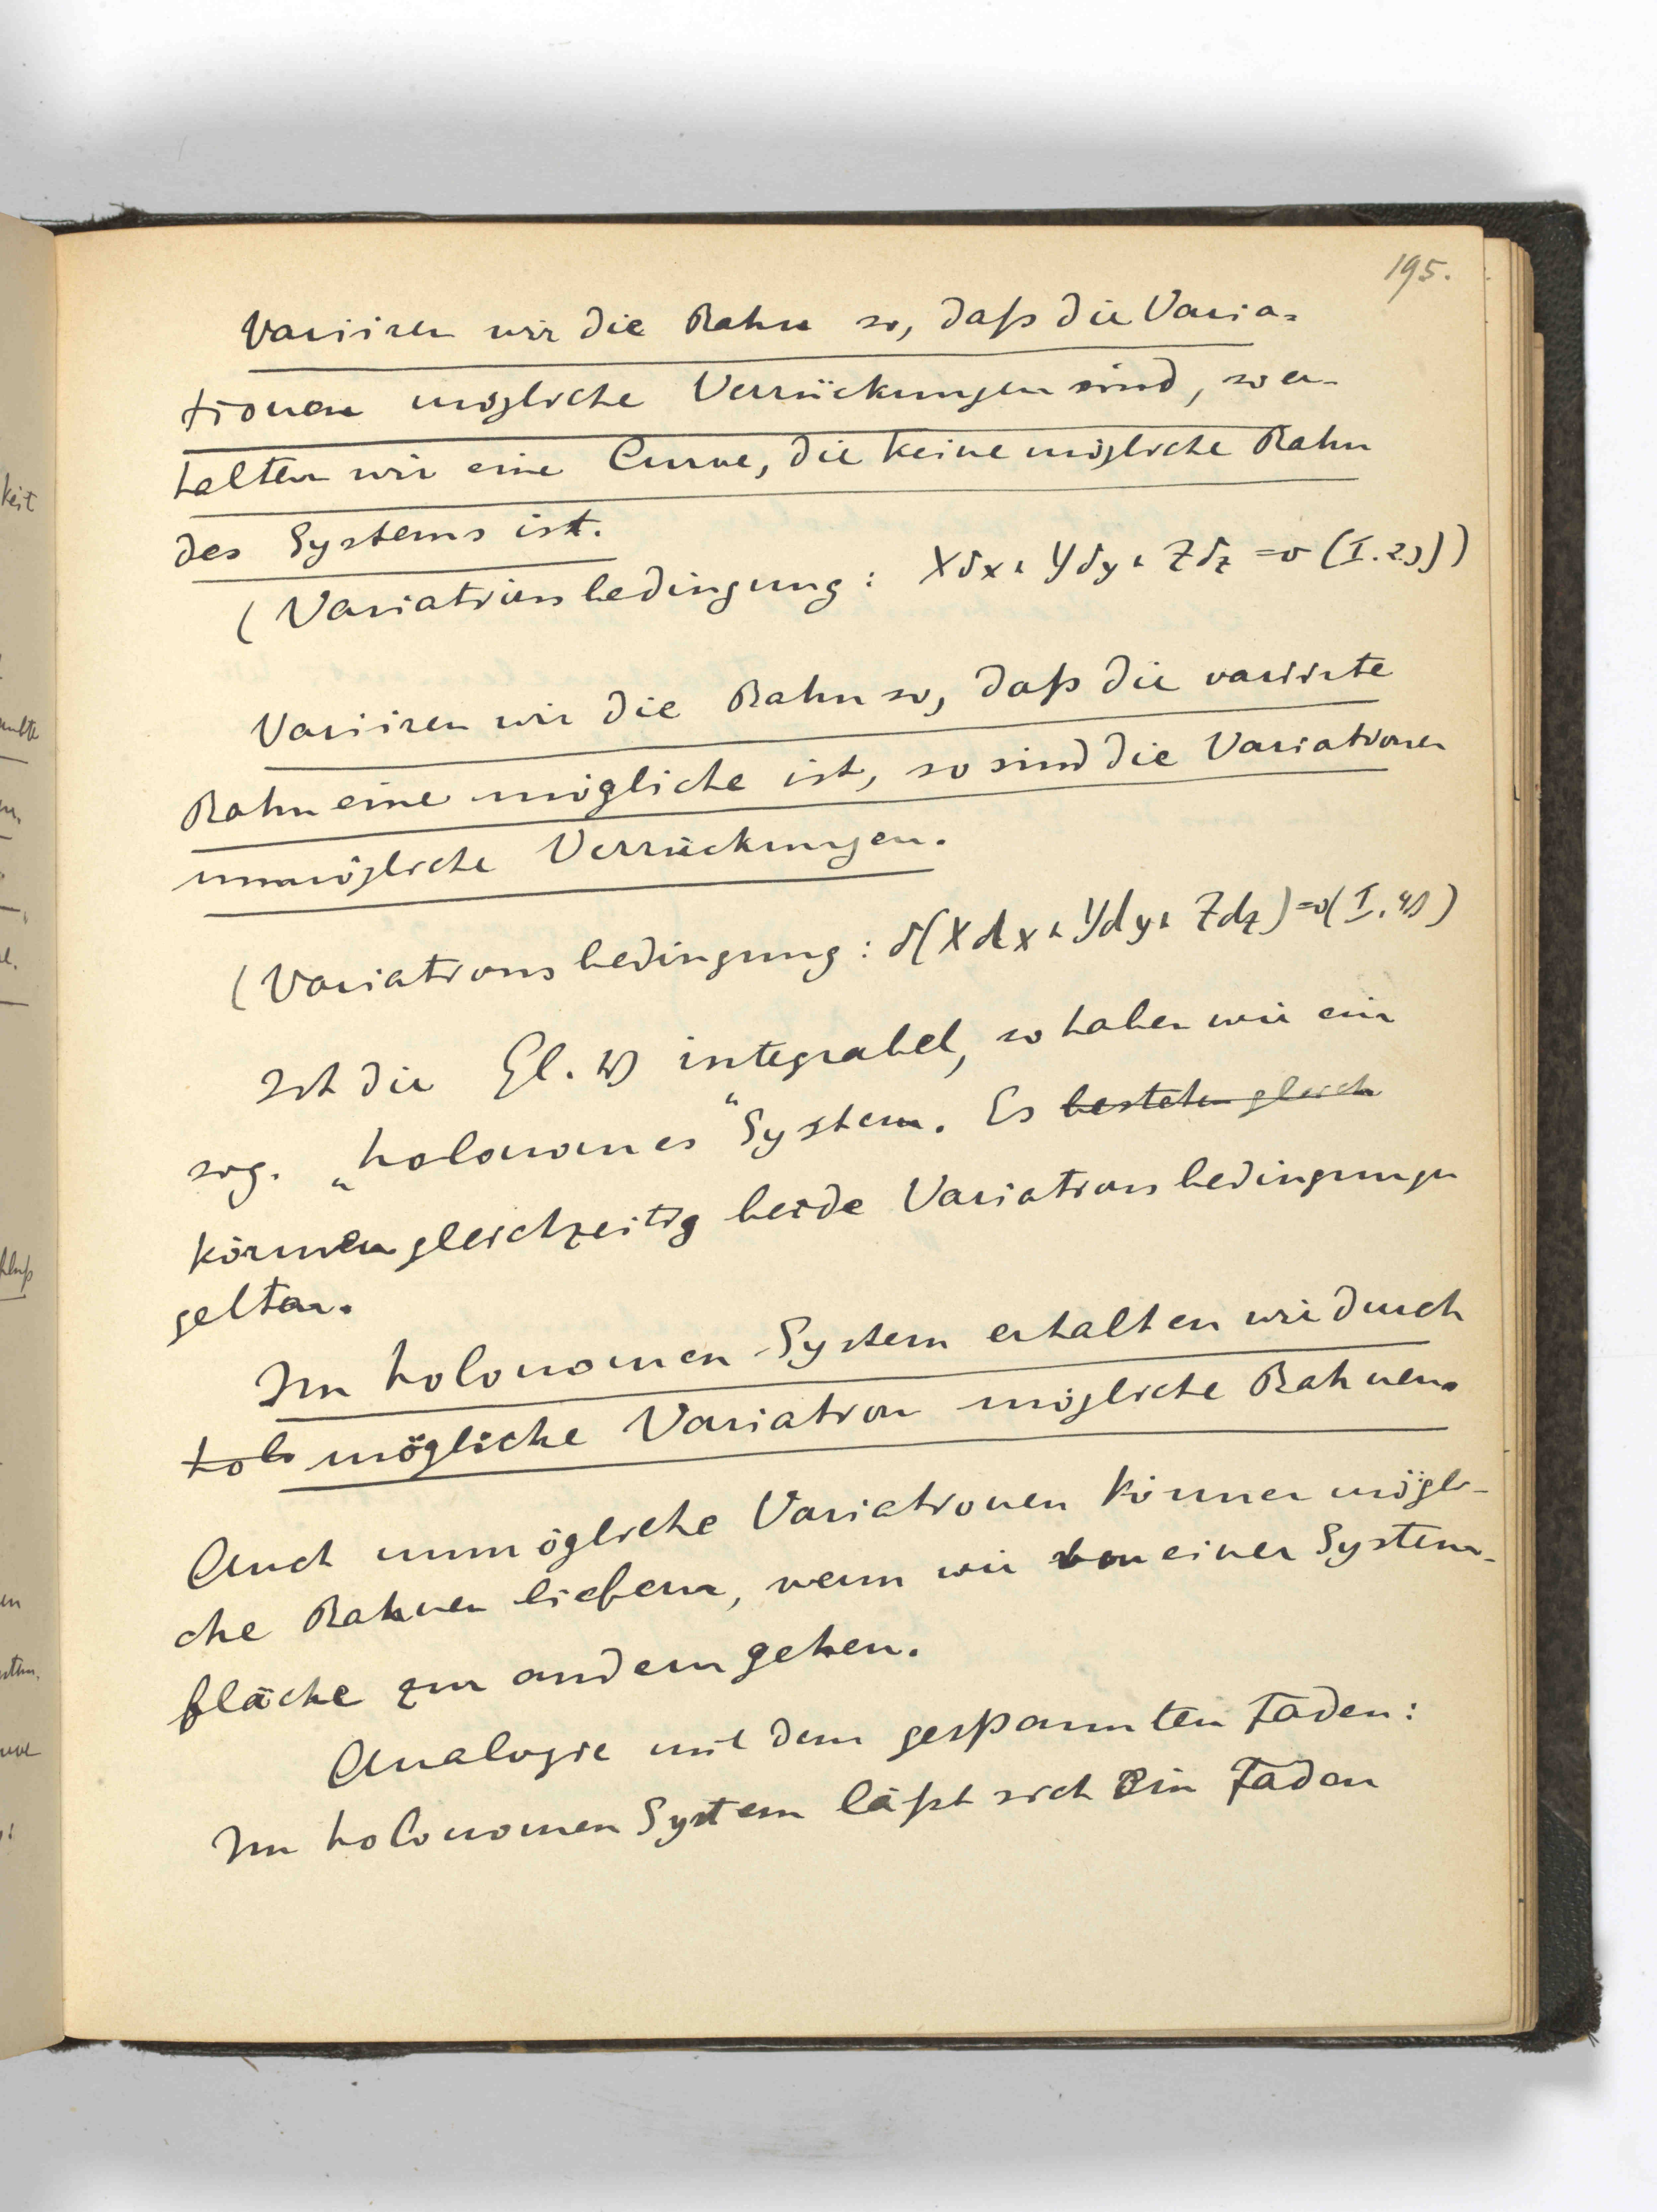 195.
Variiren wir die Bahn so, daß die Varia-
tionen mögliche Verrückungen sind, so er-
halten wir eine Curve, die keine mögliche Bahn
des Systems ist.
(Variationsbedingung: Xδx + Yδy + Zδz = 0 (I. 2))
Variiren wir die Bahn so, daß die variirte
Bahn eine mögliche ist, so sind die Variationen
unmögliche Verrückungen.
(Variationsbedingung: δ(Xdx + Ydy + Zdz) = 0 (I, 4))
Ist die Gl. 1) integrabel, so haben wir ein
sog. „holonomes“ System. Es bestehen gleich
können gleichzeitig beide Variationsbedingungen
gelten.
Im holonomen System erhalten wir durch
holo mögliche Variation mögliche Bahnen.
Auch unmögliche Variationen können mögli-
che Bahnen liefern, wenn wir von einer System-
fläche zur andern gehen.
Analogie mit dem gespannten Faden:
Im holonomen System läßt sich ein Faden
keit